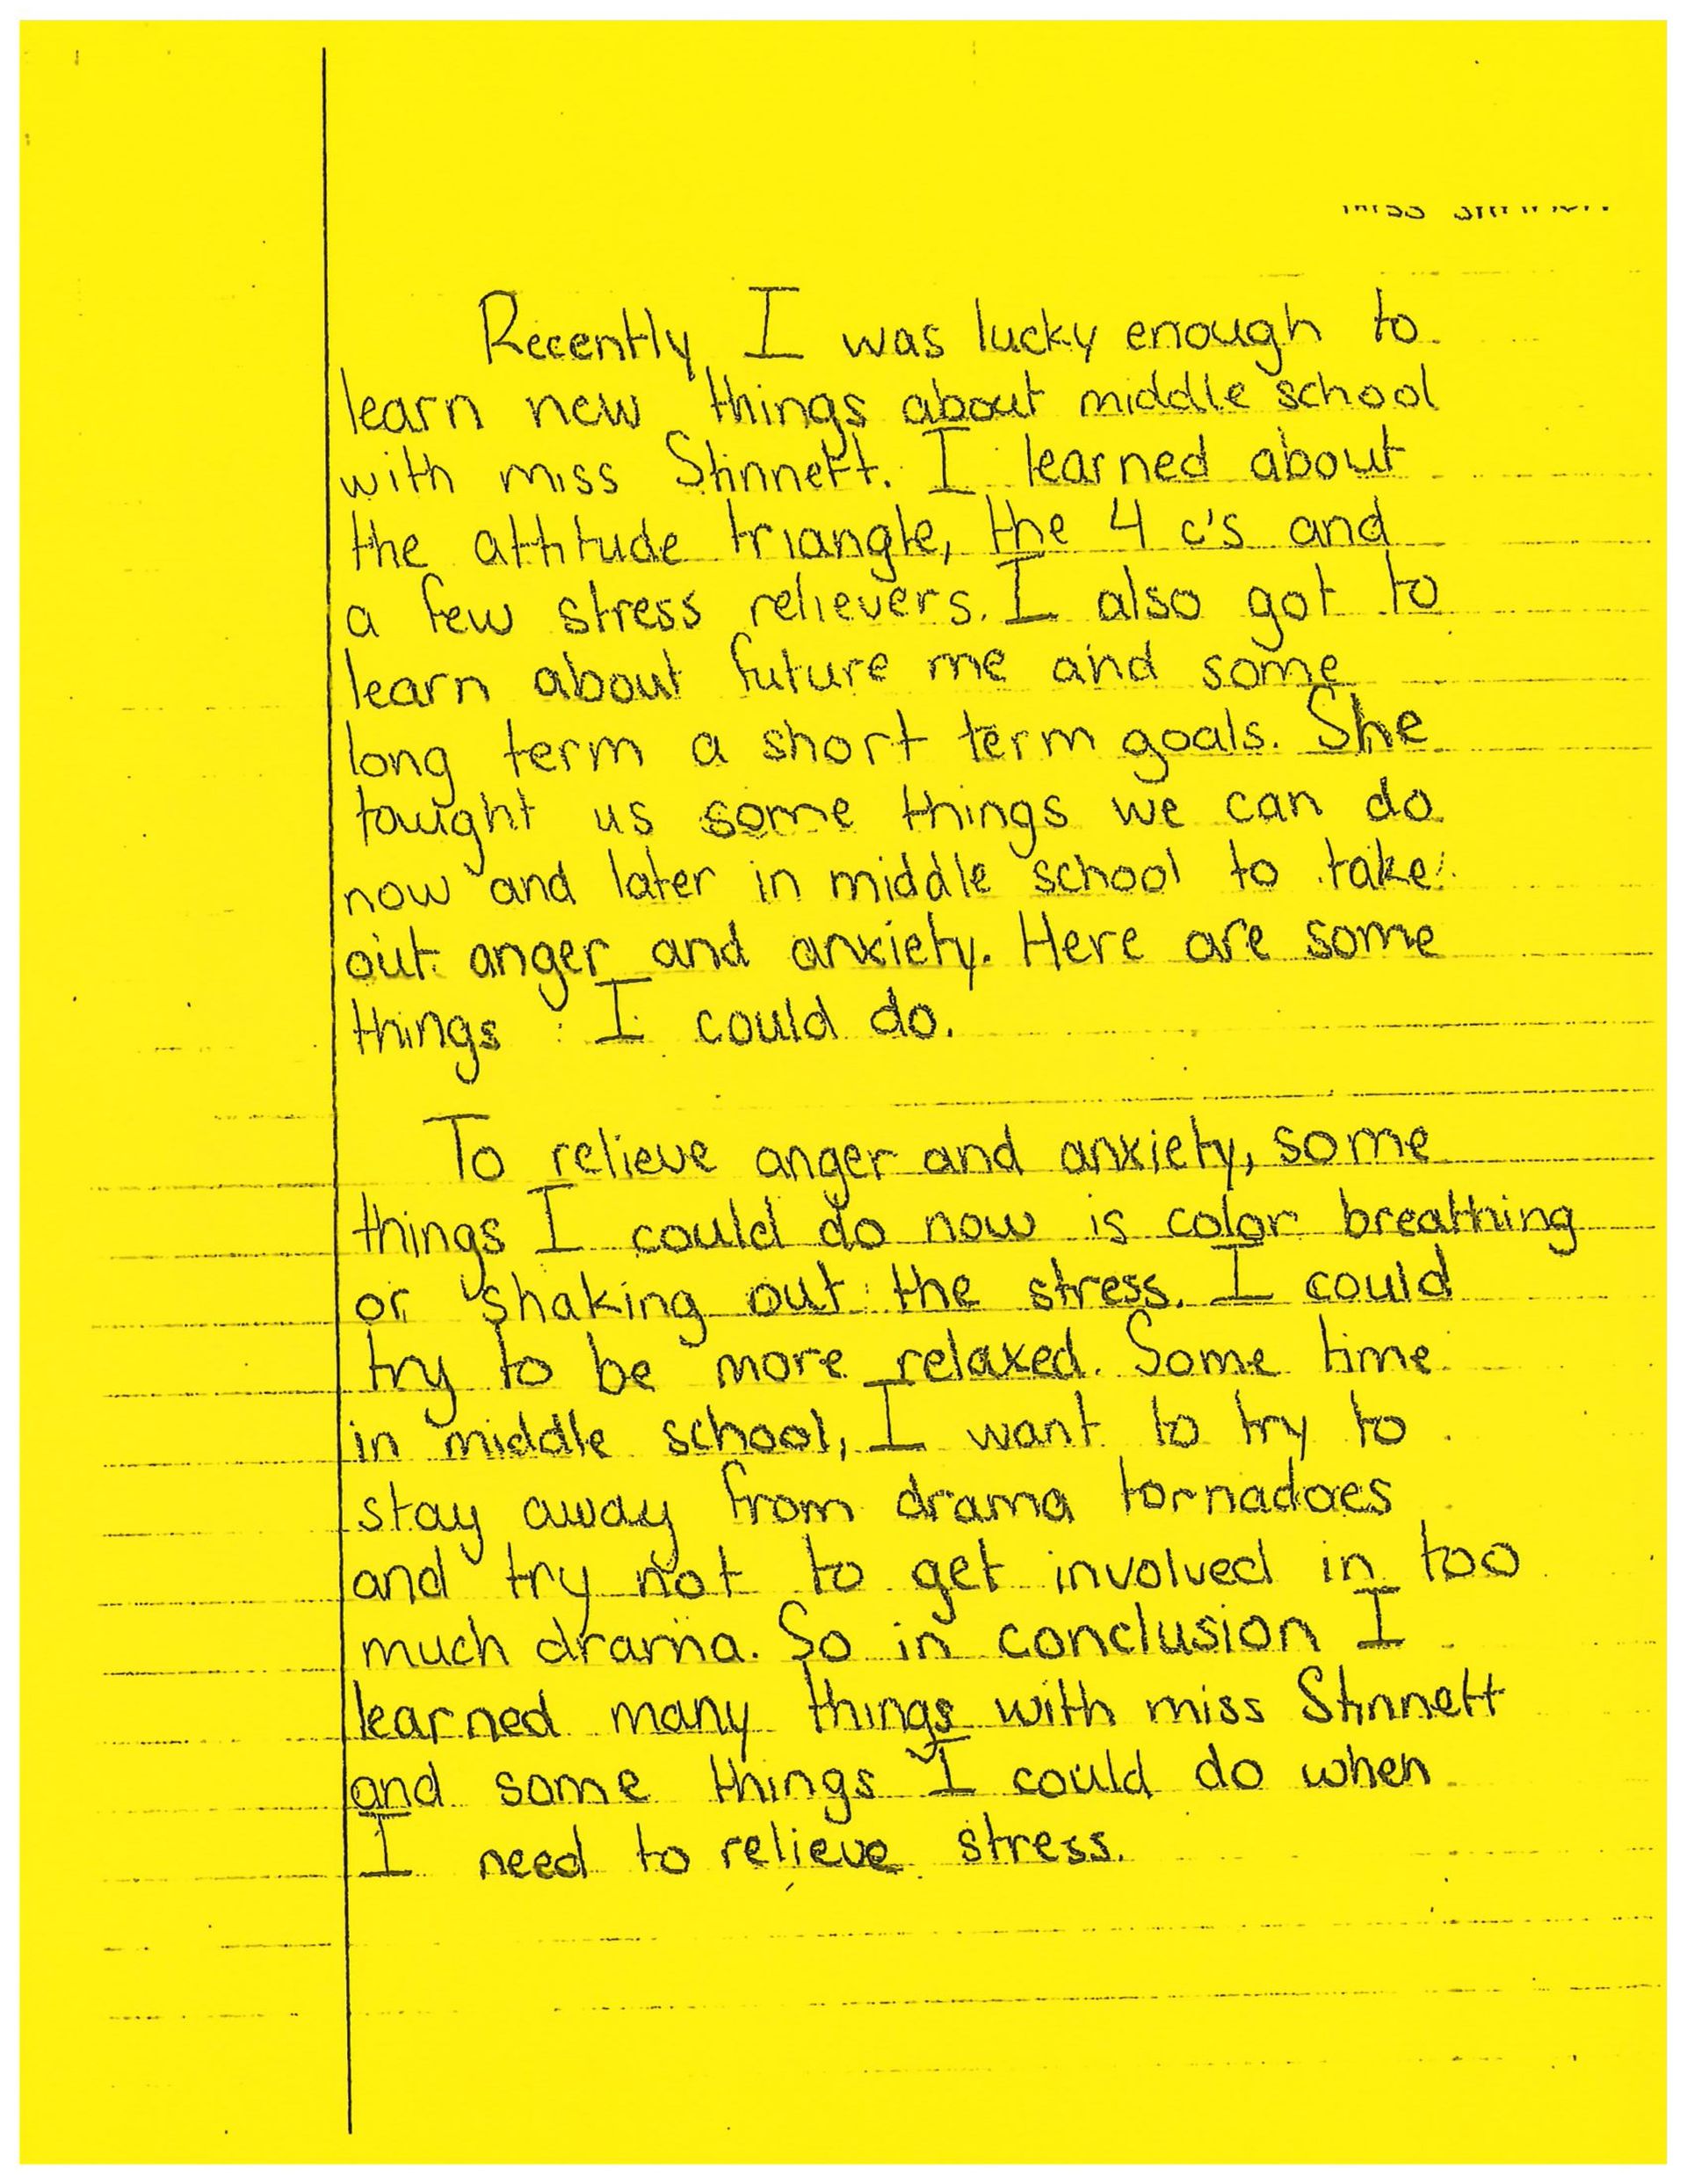 Recently I was lucky enough to
learn new things about middle school
with miss Stinnett. I learned about
the attitude triangle, the 4 c's and
a few stress relievers. I also got to
learn about future me and some
long term a short term goals. She
tought us some things we can do
now and later in middle school to take
out anger and anxiety. Here are some
things I could do.
To relieve anger and anxiety, some
things I could do now is color breathing
or shaking out the stress. I could
try to be more relaxed. Some time
in middle school, I want to try to
stay away from drama tornadoes
and try not to get involved in too
much drama. So in conclusion I
learned many things with miss Stinnett
and some things I could do when
I need to relieve stress.